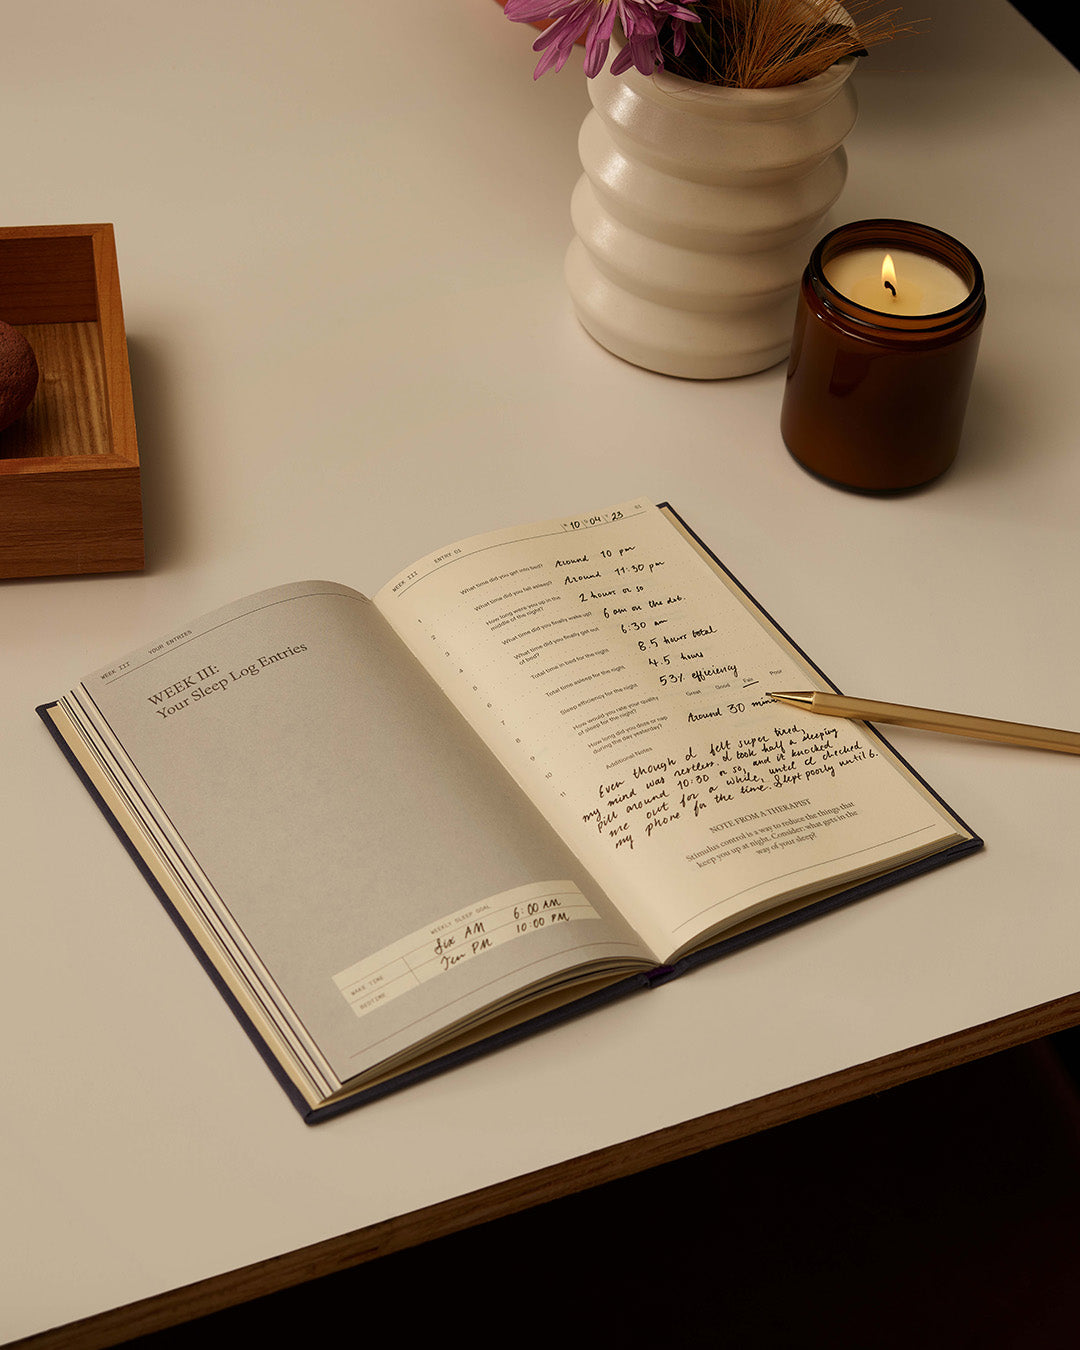 WEEK III YOUR ENTRIES
WEEK III:
Your Sleep Log Entries
WEEKLY SLEEP GOAL
WAKE TIME Six AM 6:00 AM
BEDTIME Ten PM 10:00 PM
WEEK III ENTRY 01 10 04 23
1 What time did you get into bed? Around 10 pm
2 What time did you fall asleep? Around 11:30 pm
3 How long were you up in the
middle of the night? 2 hours or so
4 What time did you finally wake up? 6 am on the dot.
5 What time did you finally get out
of bed? 6:30 am
6 Total time in bed for the night 8.5 hours total
7 Total time asleep for the night 4.5 hours
8 Sleep efficiency for the night 53% efficiency
9 How would you rate your quality
of sleep for the night? Great Good Fair Poor
10 How long did you doze or nap
during the day yesterday? Around 30
11 Additional Notes
Even though I felt super tired,
my mind was restless. I took half a sleeping
pill around 10:30 or so, and it knocked
me out for a while, until I checked
my phone for the time. Slept poorly until 6.
NOTE FROM A THERAPIST
Stimulus control is a way to reduce the things that
keep you up at night. Consider: what gets in the
way of your sleep?